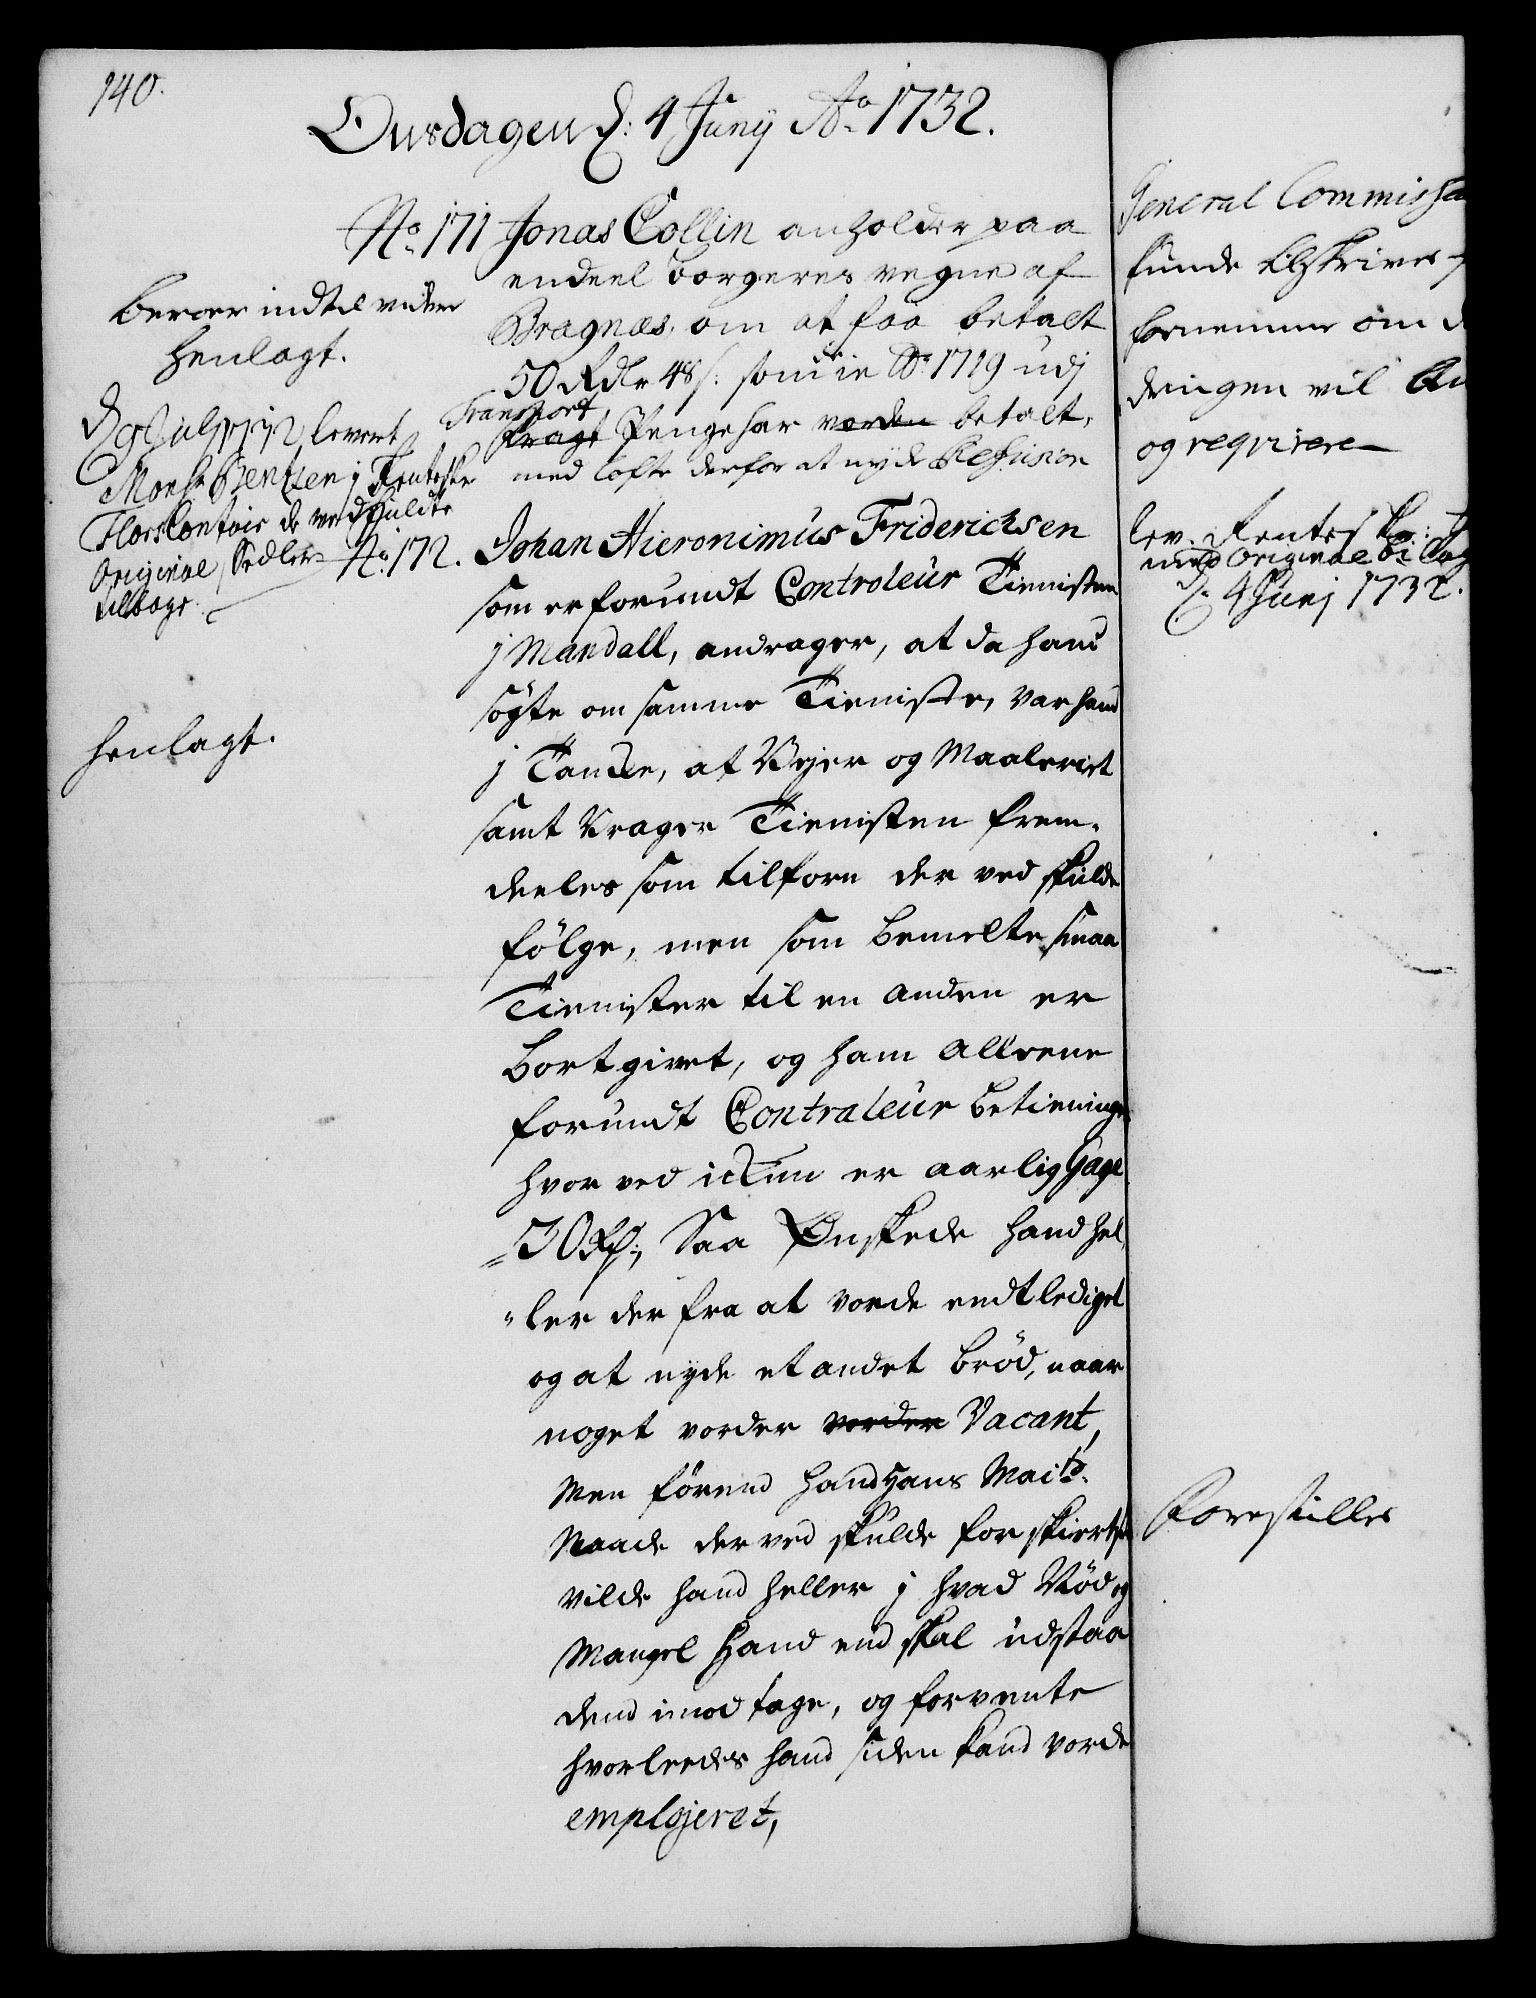 140.
Onsdagen d: 4 Junij Ao 1732.
No 171 Jonas Collin anholder paa
endeel borgeres vegne af
Bragnæs, om at faa betalt
50 Rdlr 48 s: som in Ao 1719 udj
Transport
fragt Penge har worden betalt,
med løfte derfor at nyde Refusion
beroer indtil videre
henlagt.
levert
Monsr Bentzen j Renteskr
Contoir de medfulde
Originale Sedler
tilbage.
No 172. Johan Hieronimus Friderichsen
som er forundt Controleur Tienisten
j Mandall, andrager, at da hand
søgte om samme Tieniste, var hand
j Tancke, at Vejer og Maaleriet
samt Vrager Tienisten frem-
deeles som tilforn der ved skulde
følge, men som bemelte smaa
Tienister til en anden er
bortgivet, og ham alleene
forundt Contraleur betieninge
hvor ved ickun er aarlig Gage
30 Rd:, Saa Ønskede hand hel,
"ler der fra at vorde endtlediget
og at nyde et andet brød, naar
noget vorder vorder Vacant,
Men førend hand Hans Maits.
Naade der ved skulde forskiertse
vilde hand heller j hvad Nød og
Mangel Hand end skal udstaa
dend imodtage, og forvente
hvorleedes hand siden kand vorde
emplojeret,
henlagt.
General Commissa
kunde tilskrives
fornemme om d
dringen vil
og reqvirere
lev. Rentes
med Originale bilag
d. 4 Junj 1732.
Forestilles